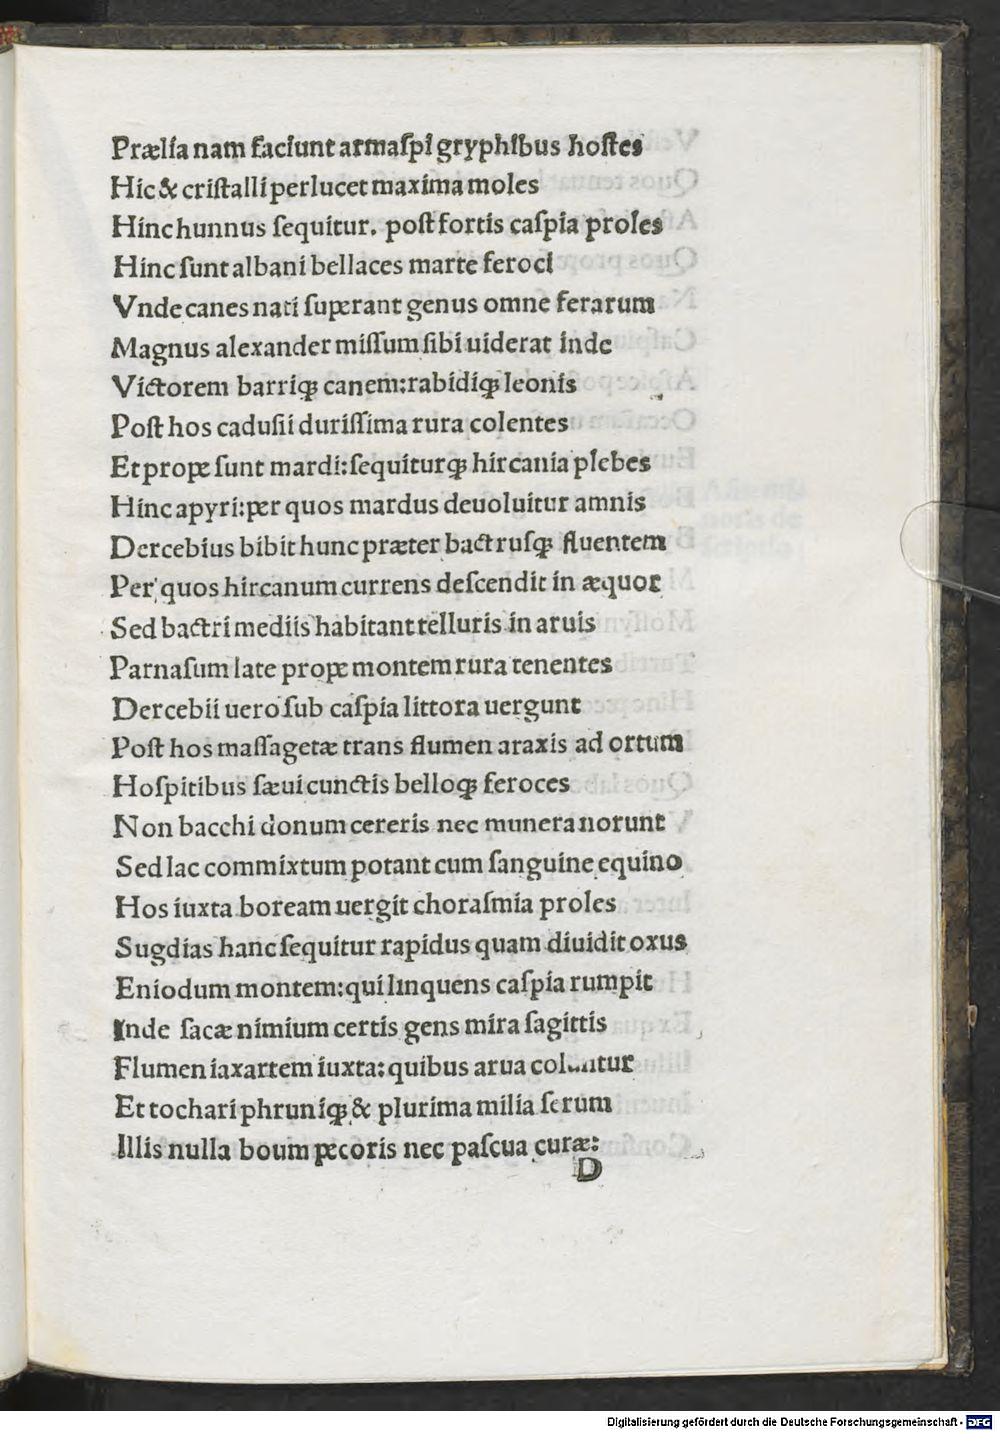 Prælia nam faciunt armaſpi gryphibus hoſtes
Hic & criſtalli perlucet maxima moles
Hinc hunnus ſequitur. poſt fortis caſpia proles
Hinc ſunt albani bellaces marte feroci
Vnde canes nati ſuperant genus omne ferarum
Magnus alexander miſſum ſibi uiderat inde
Victorem barriqꝫ canem:rabidiqꝫ leonis
Poſt hos caduſii duriſſima rura colentes
Et prope ſunt mardi:ſequiturqꝫ hircania plebes
Hinc apyri:per quos mardus deuoluitur amnis
Dercebius bibit hunc præter bactruſqꝫ fluentem
Per quos hircanum currens deſcendit in æquor
Sed bactri mediis habitant telluris in aruis
Parnaſum late prope montem rura tenentes
Dercebii uero ſub caſpia littora uergunt
Poſt hos maſſagetæ trans flumen araxis ad ortum
Hoſpitibus ſæui cunctis belloqꝫ feroces
Non bacchi donum cereris nec munera norunt
Sed lac commixtum potant cum ſanguine equino
Hos iuxta boream uergit choraſmia proles
Sugdias hanc ſequitur rapidus quam diuidit oxus
Eniodum montem:qui linquens caſpia rumpit
Inde ſacæ nimium certis gens mira ſagittis
Flumen iaxartem iuxta:quibus arua coluntur
Et tochari phruniqꝫ & plurima milia ſerum
Illis nulla boum pecoris nec paſcua curæ:
D
Digitalisierung gefördert durch die Deutsche Forschungsgemeinschaft - DFG